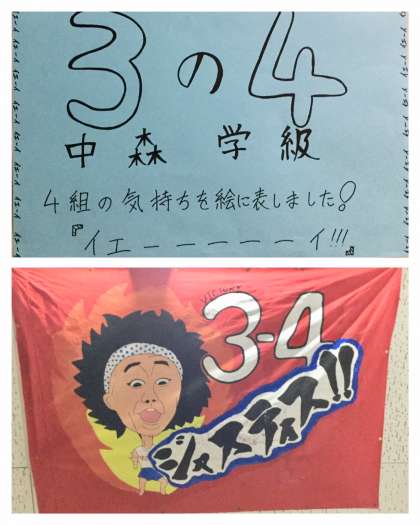 3の4
中森 学級
4組の気持ちを絵に表しました!
『イエーーーーーイ!!!』
3-4
ジャスティス!!